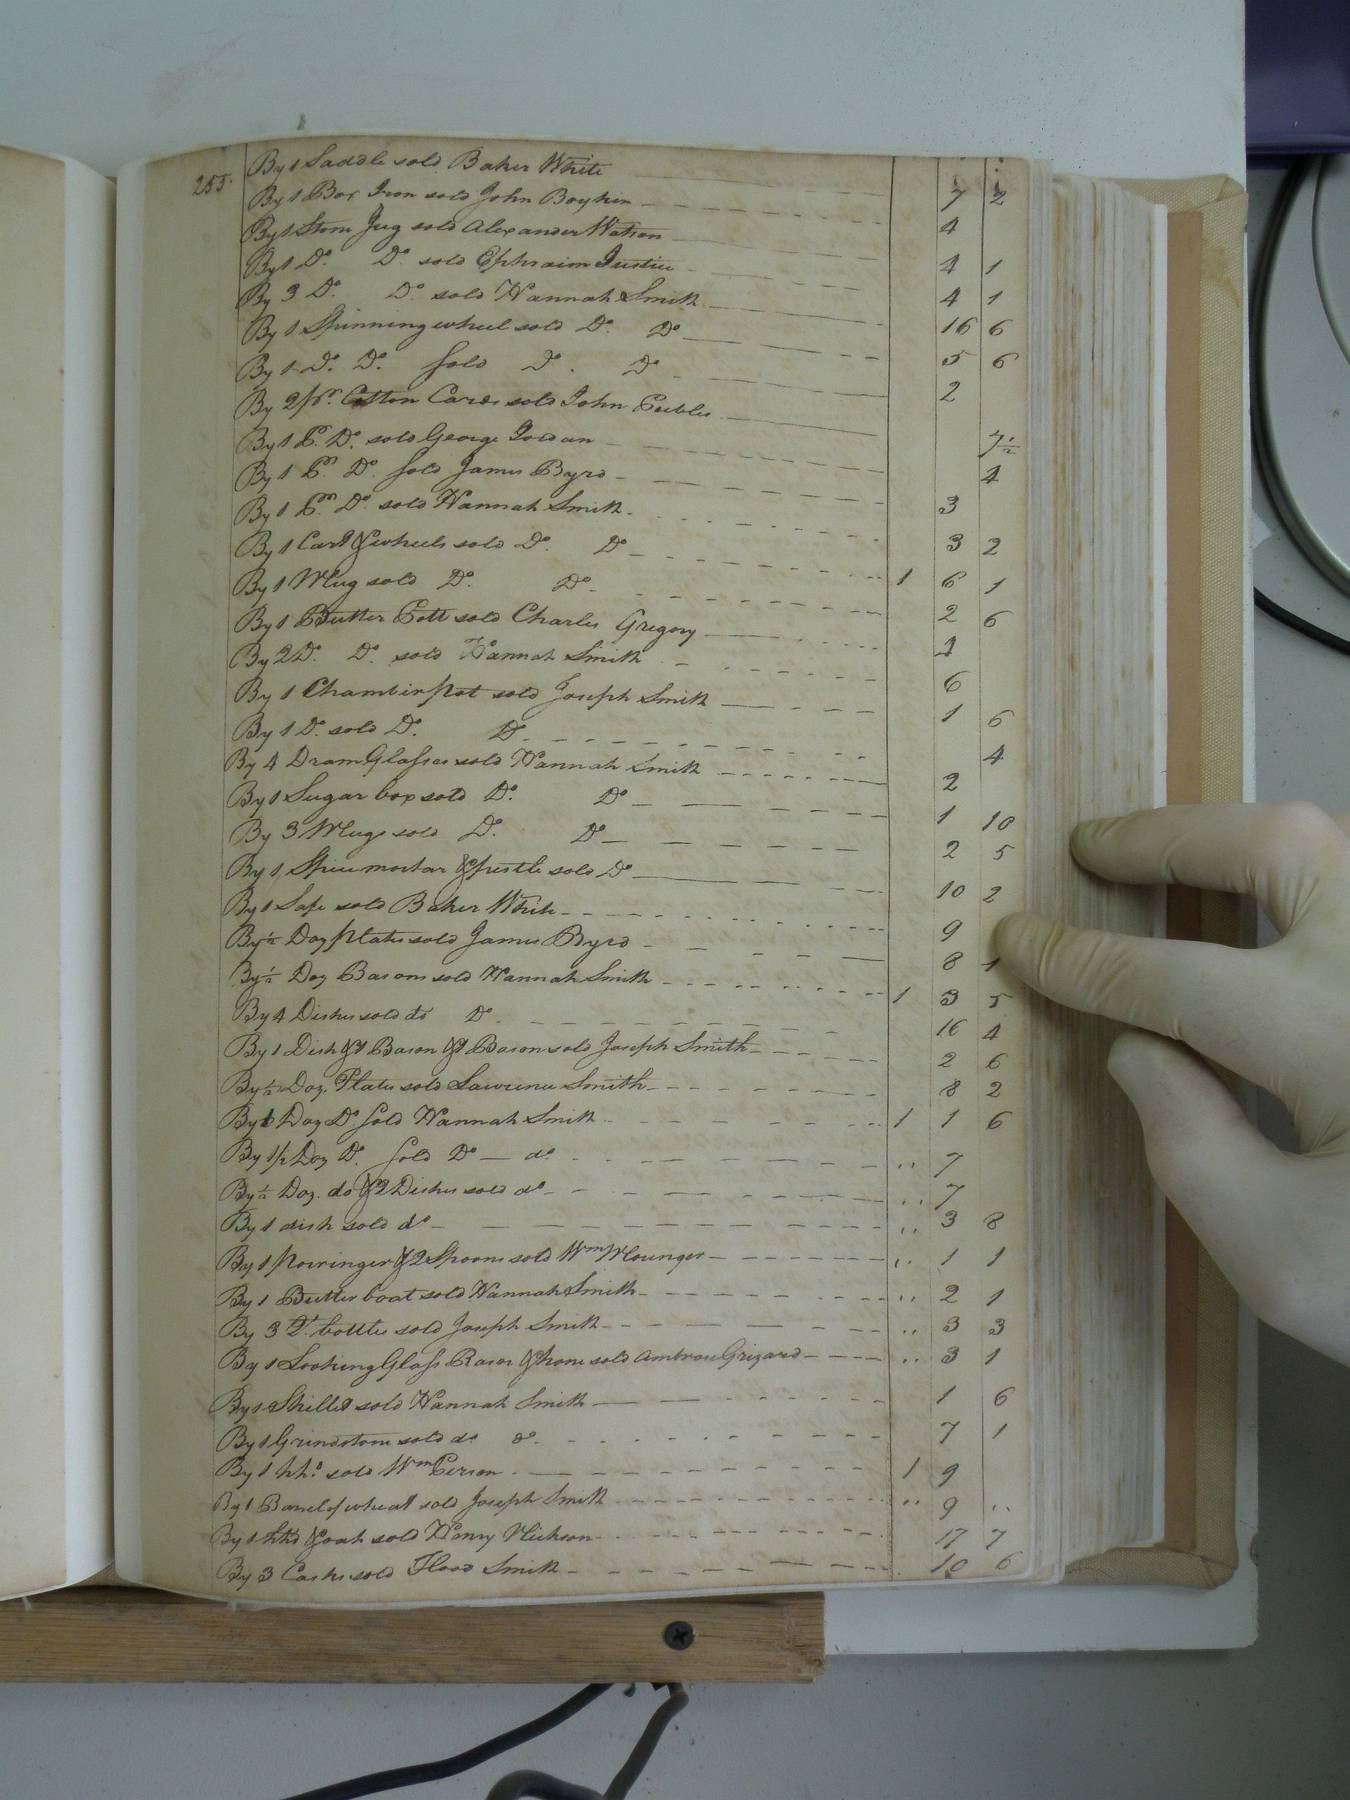 By 1 Saddle sold Baker White
255. By 1 Box Iron sold John Boykin 7 2
By 1 Stone Jug sold Alexander Watson 4
By 1 Do. Do. sold Ephraim Justice 4 1
By 3 Do. Do. sold Hannah Smith 4 1
By 1 Spinning wheel sold Do. Do 16 6
By 1 Do. Do. sold Do. Do 5 6
By 2 pr. Cotton Cards sold John Peebles 2
By 1 P. Do. sold George Jordan 7½
By 1 Pr Do. sold James Byrd 4
By 1 Pr Do. sold Hannah Smith 3
By 1 Cart & wheels sold Do. Do 3 2
By 1 Mug sold Do. Do. 1 6 1
By 1 Butter Pott sold Charles Gregory 2 6
By 2 Do. Do. sold Hannah Smith
By 1 Chamber pot sold Joseph Smith 6
By 1 Do. sold Do. Do 1 6
By 4 Dram Glasses sold Hannah Smith 4
By 1 Sugar box sold Do. Do 2
By 3 Mugs sold Do. Do 1 10
By 1 Spice mortar & pestle sold Do 2 5
By 1 Safe sold Baker White 10 2
By ½ Doz plates sold James Byrd 9
By ½ Doz Basons sold Hannah Smith 8 1
By 4 Dishes sold do Do 1 3 5
By 1 Dish & 1 Bason & 1 Bason sold Joseph Smith 16 4
By ½ Doz. Plates sold Lawrence Smith 2 6
8 2
By Doz Do sold Hannah Smith 1 1 6
By 1½ Doz Do. sold Do — do. 7
By ½ Doz. do & 2 Dishes sold do 7
By 1 dish sold do 3 8
By 1 Porringer & 2 Spoons sold Wm Mounger 1 1
By 1 Butter boat sold Hannah Smith 2 1
By 3 Do. bottles sold Joseph Smith 3 3
By 1 Looking Glass Rasor & hone sold Ambrose Grizard 3 1
By 1 Skillet sold Hannah Smith 1 6
By 1 Grindstone sold do do. 7 1
By 1 hhd sold Wm Person 1 9
By 1 Barrel of wheat sold Joseph Smith 9
By 1 hhd & oats sold Henry 17 7
By 3 Casks sold Flood Smith 10 6